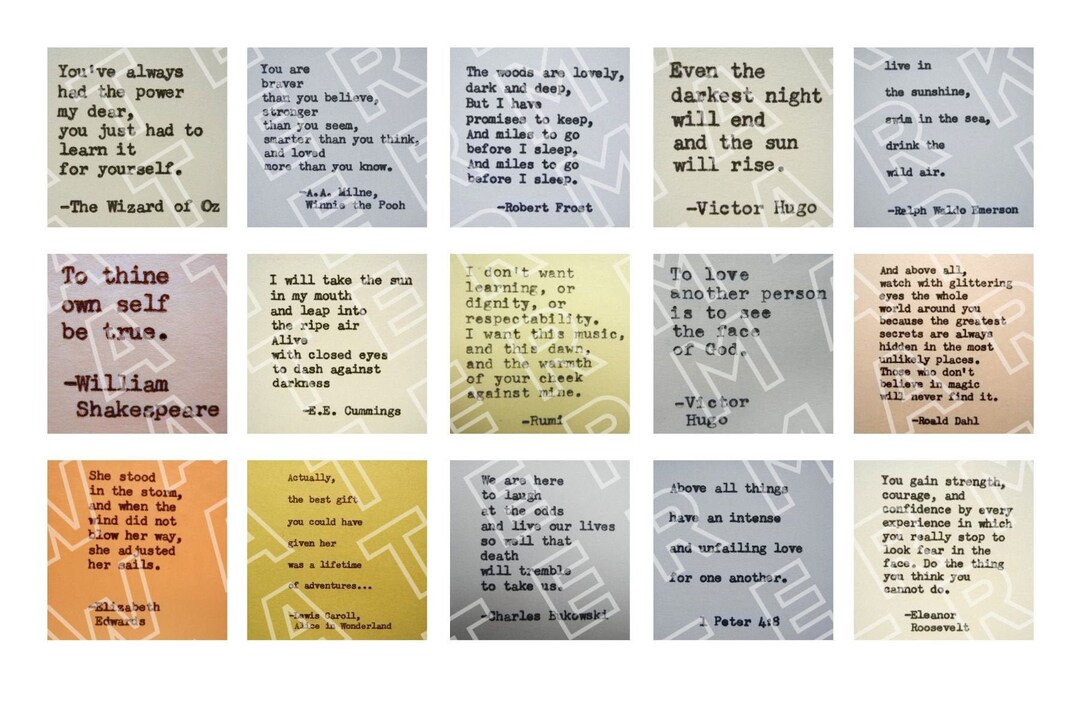 You've always
had the power
my dear,
you just had to
learn it
for yourself.
—The Wizard of Oz
You are
braver
than you believe,
stronger
than you seem,
smarter than you think,
and loved
more than you know.
—A.A. Milne,
Winnie the Pooh
The woods are lovely,
dark and deep,
But I have
promises to keep,
And miles to go
before I sleep,
And miles to go
before I sleep.
—Robert Frost
Even the
darkest night
will end
and the sun
will rise.
—Victor Hugo
live in
the sunshine,
swim in the sea,
drink the
wild air.
—Ralph Waldo Emerson
To thine
own self
be true.
—William
Shakespeare
I will take the sun
in my mouth
and leap into
the ripe air
Alive
with closed eyes
to dash against
darkness
—E.E. Cummings
I don't want
learning, or
dignity, or
respectability.
I want this music,
and this dawn,
and the warmth
of your cheek
against mine.
—Rumi
To love
another person
is to see
the face
of God.
—Victor
Hugo
And above all,
watch with glittering
eyes the whole
world around you
because the greatest
secrets are always
hidden in the most
unlikely places.
Those who don't
believe in magic
will never find it.
—Roald Dahl
She stood
in the storm,
and when the
wind did not
blow her way,
she adjusted
her sails.
—Elizabeth
Edwards
Actually,
the best gift
you could have
given her
was a lifetime
of adventures...
—Lewis Caroll,
Alice in Wonderland
We are here
to laugh
at the odds
and live our lives
so well that
death
will tremble
to take us.
—Charles Bukowski
Above all things
have an intense
and unfailing love
for one another.
1 Peter 4:8
You gain strength,
courage, and
confidence by every
experience in which
you really stop to
look fear in the
face. Do the thing
you think you
cannot do.
—Eleanor
Roosevelt
WATERMARK